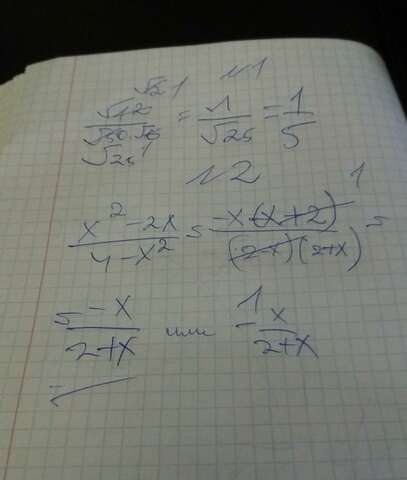 √12 1 №1
√12 / √50 √6 = 1 / √25 = 1 / 5
√25 1
№2
x² - 2x / 4 - x² = -x(-x+2) / (2-x)(2+x) =
1
= -x / 2+x или - x / 2+x
1